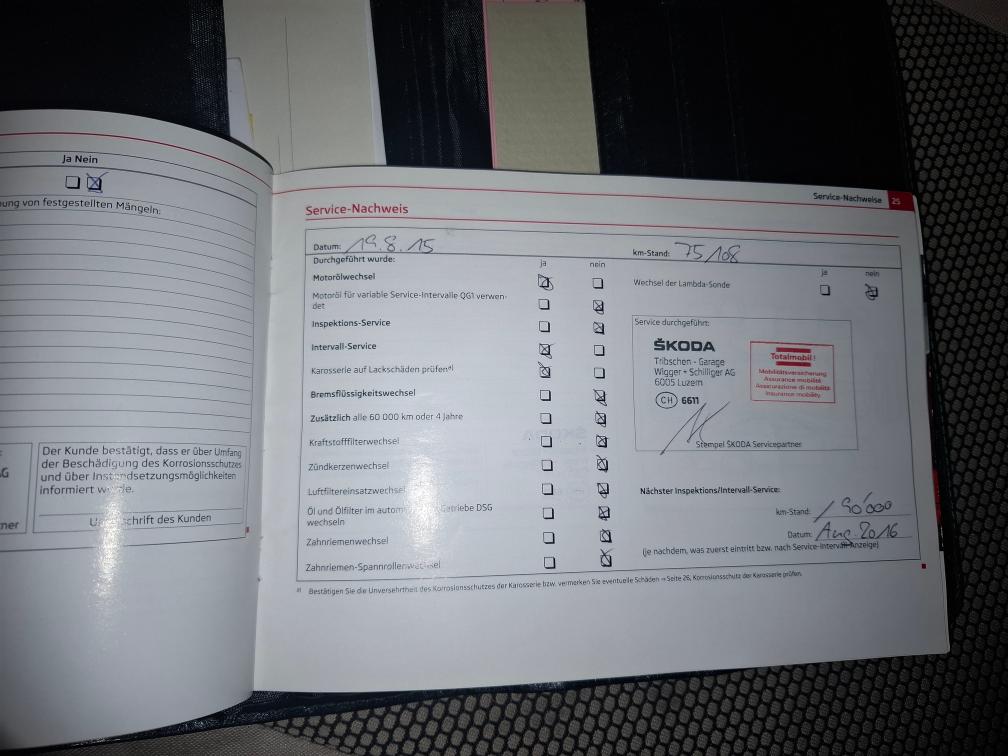 Ja Nein
ung von festgestellten Mängeln:
Der Kunde bestätigt, dass er über Umfang
der Beschädigung des Korrosionsschutzes
und über Instandsetzungsmöglichkeiten
informiert wurde.
Unterschrift des Kunden
G
ner
Service-Nachweise 25
Service-Nachweis
Datum: 19.8.15
km-Stand: 75108
Durchgeführt wurde: ja nein
ja nein
Motorölwechsel
Wechsel der Lambda-Sonde
Motoröl für variable Service-Intervalle QG1 verwen-
det
Inspektions-Service
Intervall-Service
Karosserie auf Lackschäden prüfen a)
Bremsflüssigkeitswechsel
Zusätzlich alle 60 000 km oder 4 Jahre
Kraftstofffilterwechsel
Zündkerzenwechsel
Luftfiltereinsatzwechsel
Öl und Ölfilter im autom Getriebe DSG
wechseln
Zahnriemenwechsel
Zahnriemen-Spannrollenwechsel
Service durchgeführt:
ŠKODA
Tribschen - Garage
Wigger + Schilliger AG
6005 Luzern
CH 6611
Totalmobil!
Mobilitätsversicherung
Assurance mobilité
Assicurazione di mobilità
Insurance mobility
Stempel ŠKODA Servicepartner
Nächster Inspektions/Intervall-Service:
km-Stand: 90'000
Datum: Aug. 2016
(je nachdem, was zuerst eintritt bzw. nach Service-Intervall-Anzeige)
a) Bestätigen Sie die Unversehrtheit des Korrosionsschutzes der Karosserie bzw. vermerken Sie eventuelle Schäden ⇒ Seite 26, Korrosionsschutz der Karosserie prüfen.